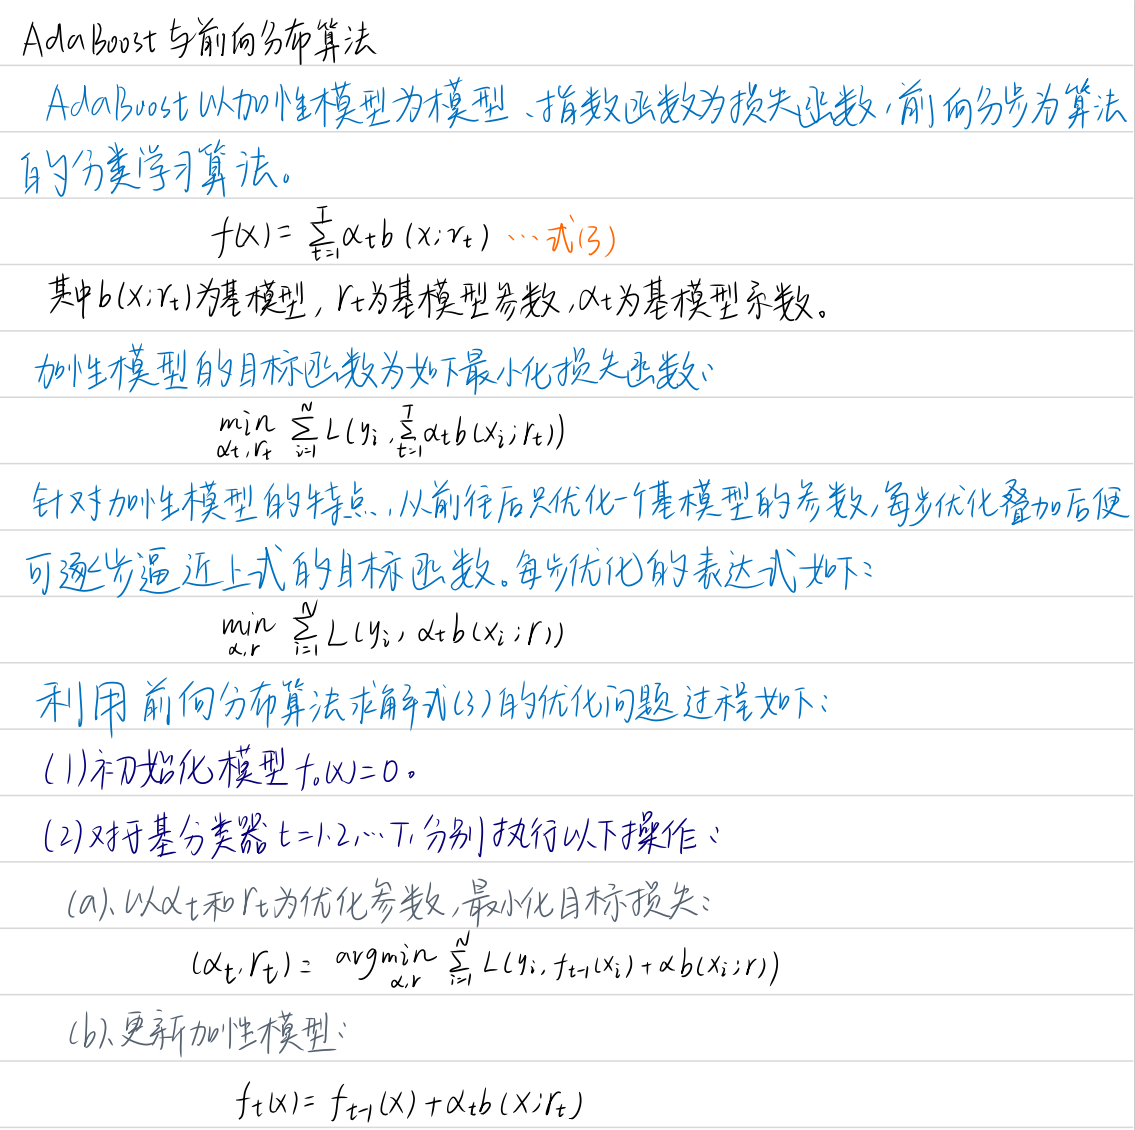 AdaBoost与前向分布算法
AdaBoost以加性模型为模型、指数函数为损失函数,前向分步为算法
的分类学习算法。
f(x)= ∑_{t=1}^{T} α_t b (x; r_t) …式(3)
其中b(x;r_t)为基模型, r_t为基模型参数,α_t为基模型系数。
加性模型的目标函数为如下最小化损失函数:
min_{α_t,r_t} ∑_{i=1}^{N} L(y_i, ∑_{t=1}^{T} α_t b(x_i; r_t))
针对加性模型的特点,从前往后只优化一个基模型的参数,每步优化叠加后便
可逐步逼近上式的目标函数。每步优化的表达式如下:
min_{α,r} ∑_{i=1}^{N} L(y_i, α_t b(x_i; r))
利用前向分布算法求解式(3)的优化问题过程如下:
(1)初始化模型f_0(x)=0。
(2)对于基分类器t=1,2,…T,分别执行以下操作:
(a)、以α_t和r_t为优化参数,最小化目标损失:
(α_t, r_t) = argmin_{α,r} ∑_{i=1}^{N} L(y_i, f_{t-1}(x_i)+αb(x_i; r))
(b)、更新加性模型:
f_t(x)= f_{t-1}(x)+α_t b(x; r_t)